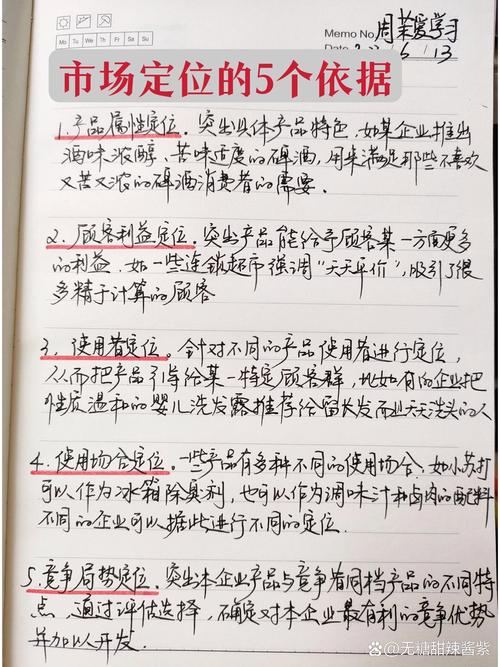 Memo No. 周荣爱学习
Mo Tu We Th Fr Sa Su
Date 6 / 13
市场定位的5个依据
1.产品属性定位。突出具体产品特色,如某企业推出
酒味浓醇、苦味适度的啤酒,用来满足那些不喜欢
又苦又浓的啤酒消费者的需要。
2.顾客利益定位。突出产品能给予顾客某一方面更多
的利益,如一些连锁超市强调“天天平价”,吸引了很
多精于计算的顾客
3.使用者定位。针对不同的产品使用者进行定位,
从而把产品引导给某一特定顾客群,比如有的企业把
性质温和的婴儿洗发露推荐给留长发而且天天洗头的人
4.使用场合定位。一些产品有多种不同的使用场合,如小苏打
可以作为冰箱除臭剂,也可以作为调味汁和卤肉的配料
不同的企业可以据此进行不同的定位.
5.竞争局势定位。突出本企业产品与竞争者同档产品的不同特
点,通过评估选择,确定对本企业最有利的竞争优势
并加以开发.
@无糖甜辣酱紫